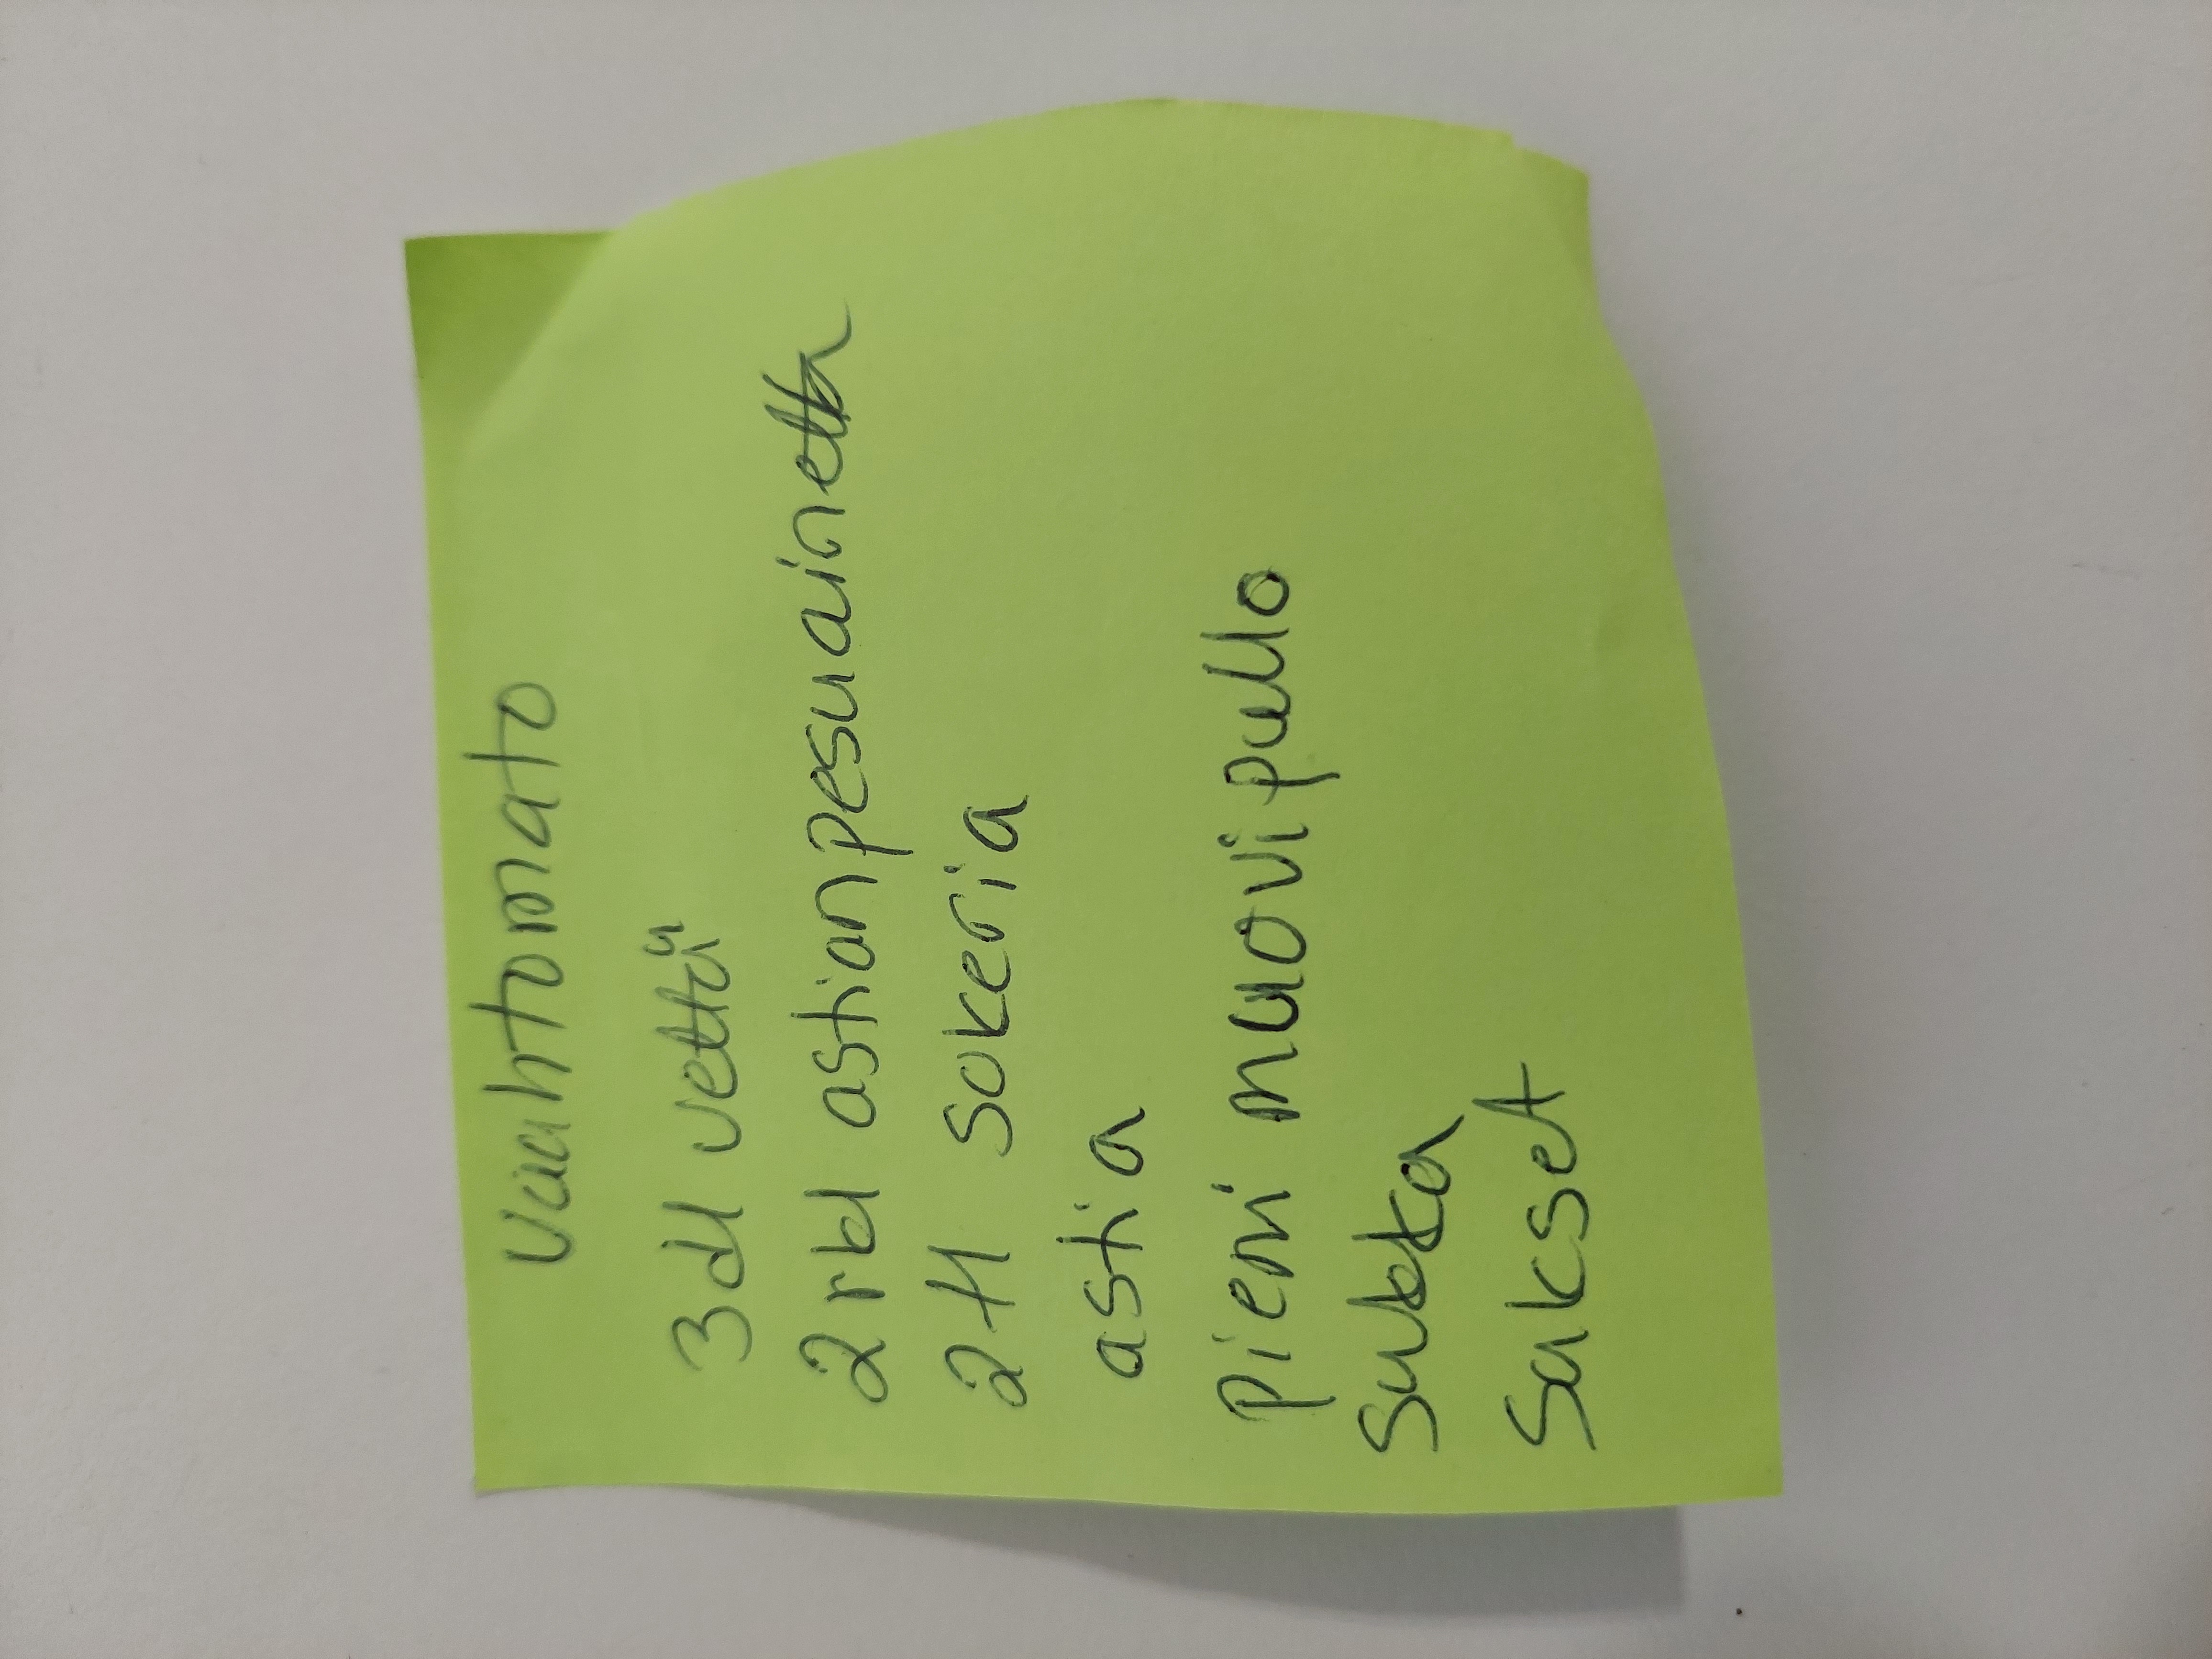 vaahtomato
3dl vettä
2 rkl astianpesuainetta
2 tl sokeria
astia
pieni muovipullo
Sukka
Sakset